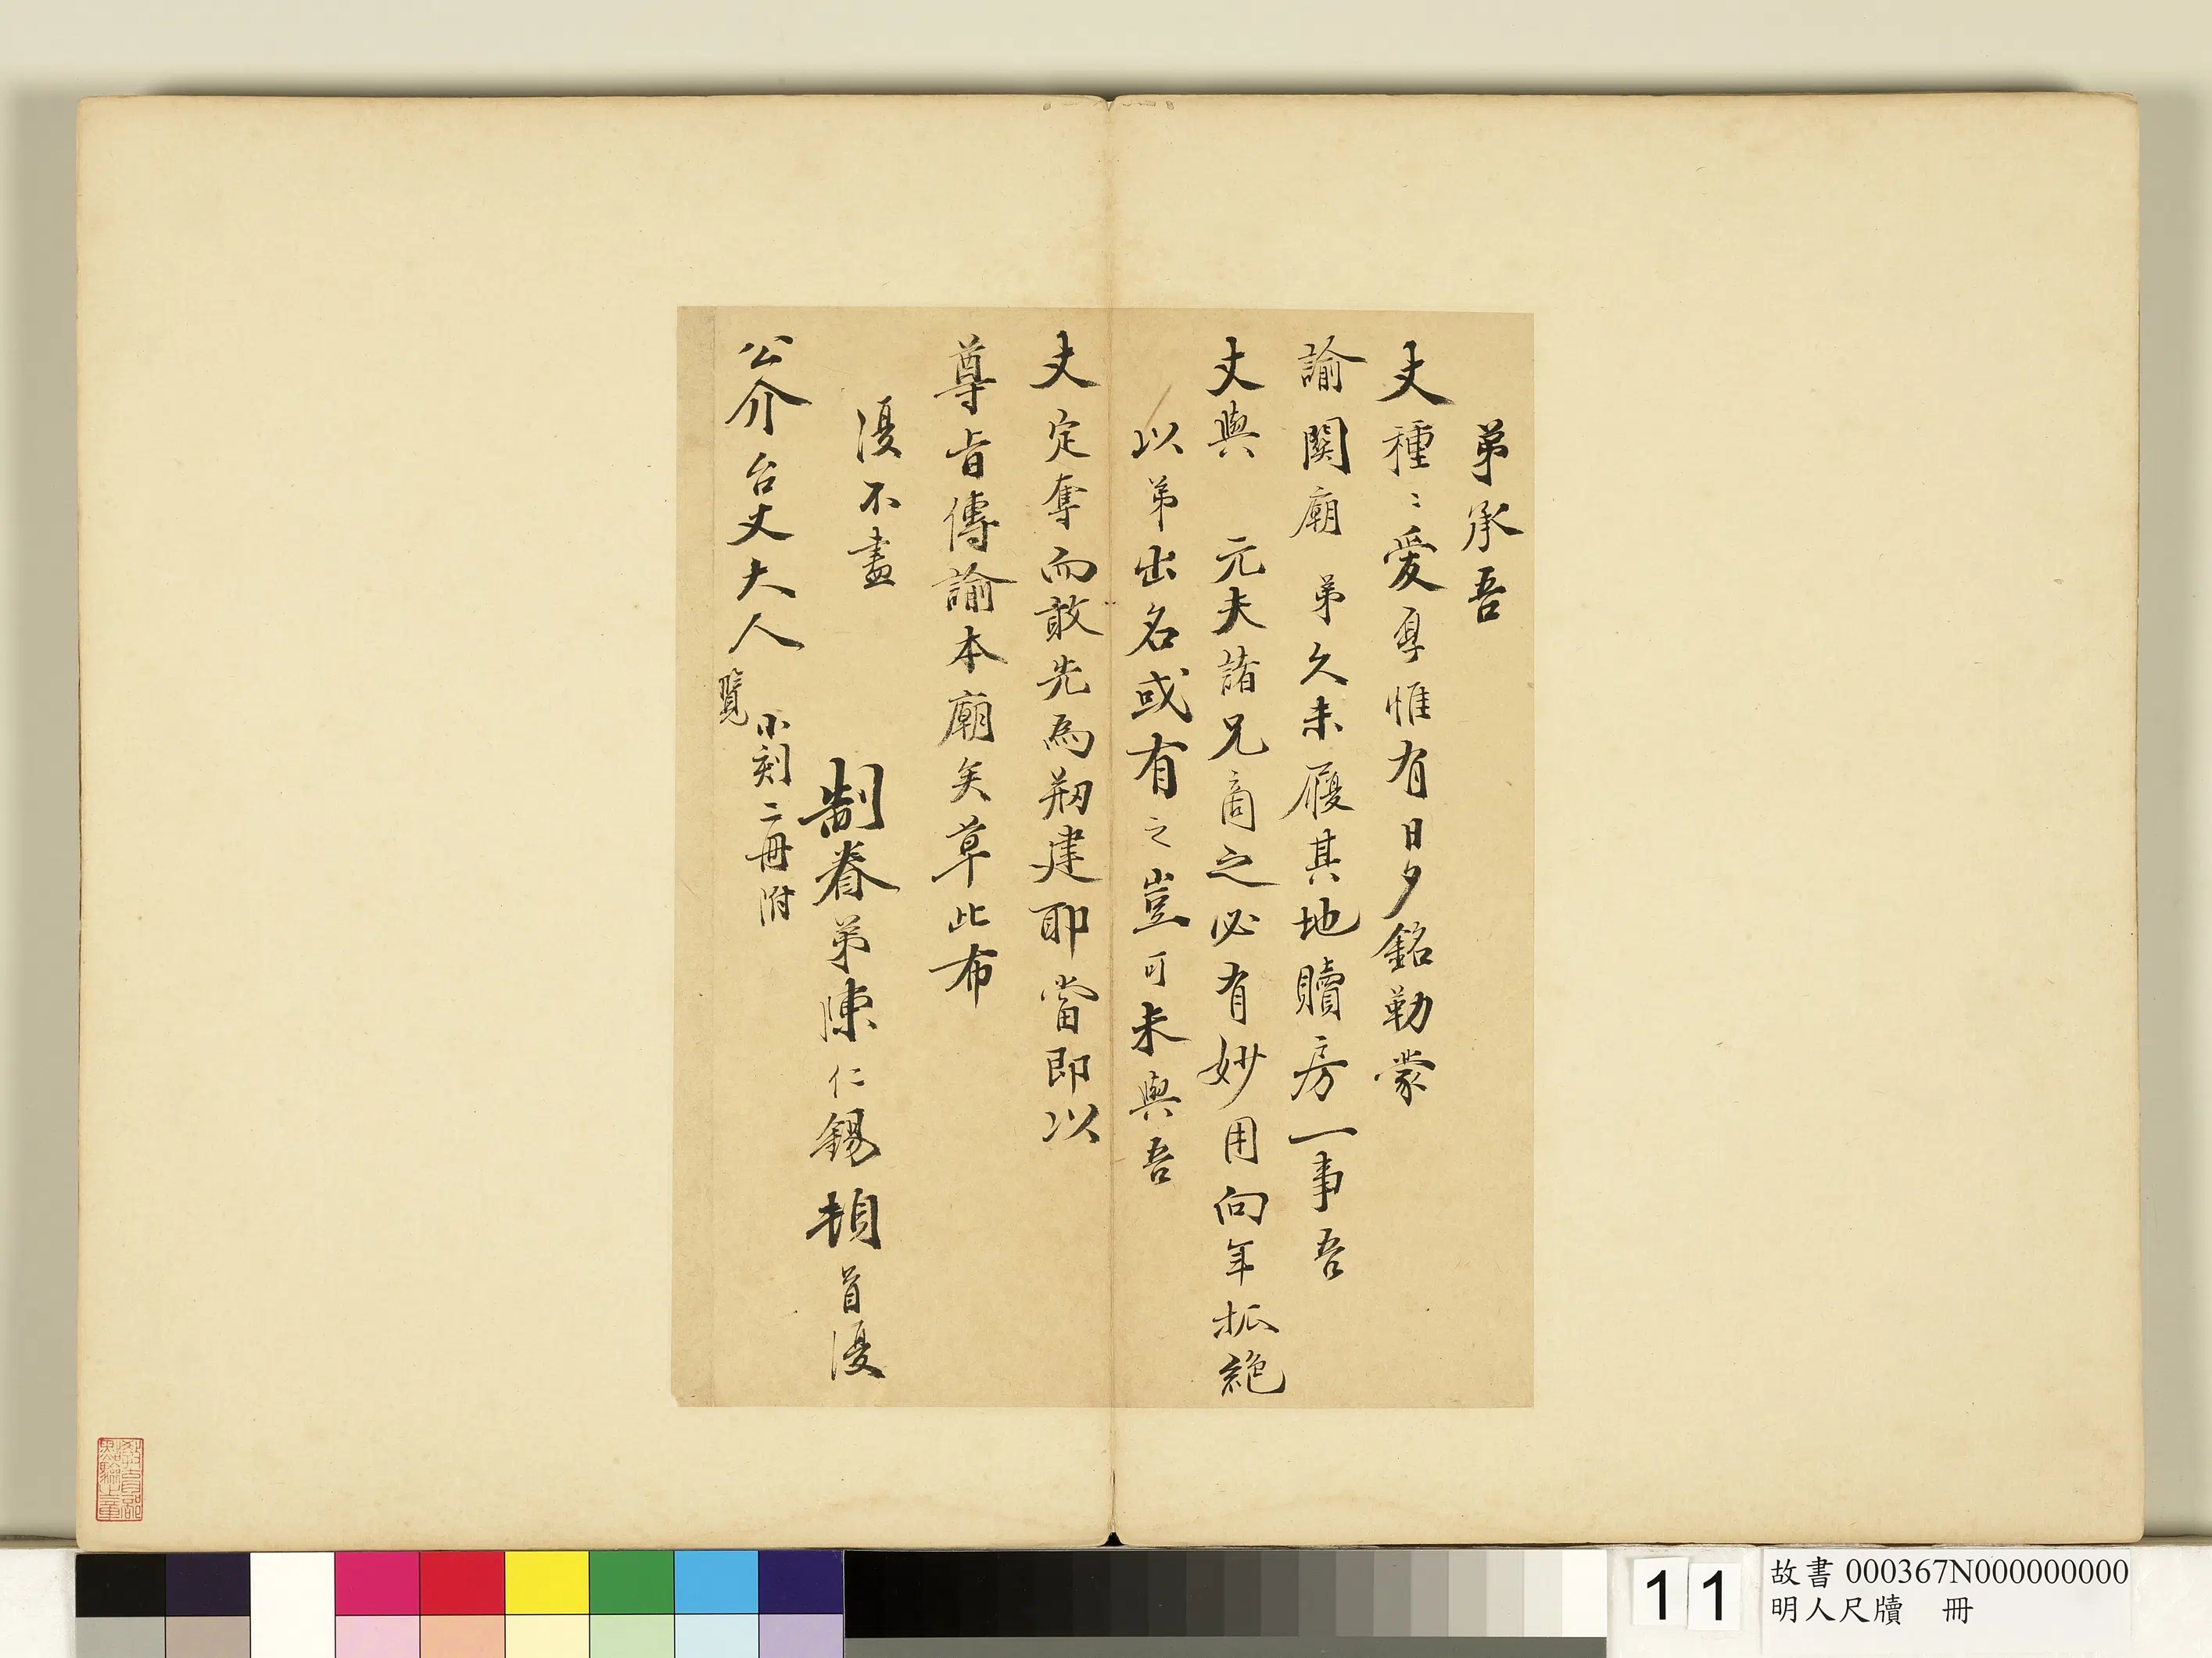 弟承吾
丈種〻愛厚惟有日夕銘勒蒙
諭關廟弟久未履其地贖房一事吾
丈與元夫諸兄商之必有妙用向年抓絕
以弟出名或有之豈可未與吾
丈定奪而敢先為剏建耶當即以
尊旨傳諭本廟矣草此布
復不盡
制眷弟陳仁錫頓首復
公介台丈大人
小刻二冊附
覽
教育部
點驗之章
11
故書 000367N000000000
明人尺牘 冊